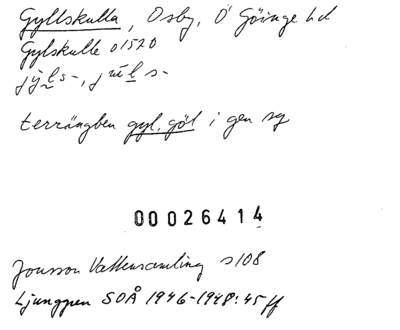 Gyllskulla, Osby, Ö Göinge hd
Gylskulle 01520
jýl s-, júl s-
terrängben gyl, göl i gen sg
00026414
Jonsson Vattensamling s108
Ljunggren SOÅ 1946-1948:45 ff